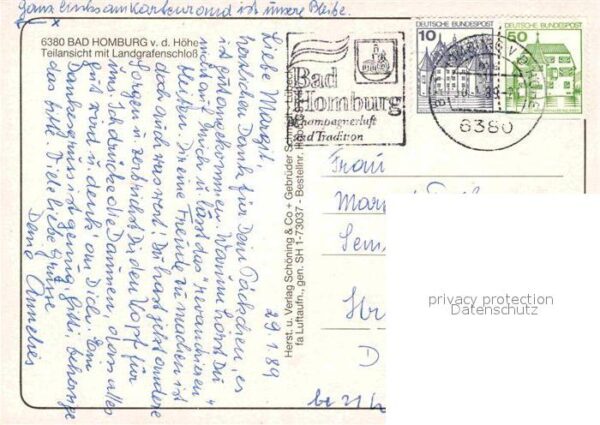 Ganz links am Kartenrand ist unsere Bleibe.
6380 BAD HOMBURG v. d. Höhe
Teilansicht mit Landgrafenschloß
29.1.89
Liebe Margit,
herzlichen Dank für Dein Päckchen, es
ist gut angekommen. Warum hörst Du
nicht auf mich u. läßt das "Revanchieren"
bleiben. Dir eine Freude zu machen ist
doch auch was wert! Du hast jetzt andere
Sorgen u. zerbrichst Dir den Kopf für
uns. Ich drücke die Daumen, dass alles
gut wird u. denk' an Dich. Dein
Dankeschön ist genug, bitte, beherzige
das bitte. Viele liebe Grüsse
Deine Annelies
Herst. u. Verlag Schöning & Co + Gebrüder Schmidt, Lübeck
fa Luftaufn., gen. SH 1-73037 - Bestellnr.
Bad
Homburg
Champagnerluft
und Tradition
6380
10
DEUTSCHE BUNDESPOST
50
DEUTSCHE BUNDESPOST
Frau
D
privacy protection
Datenschutz